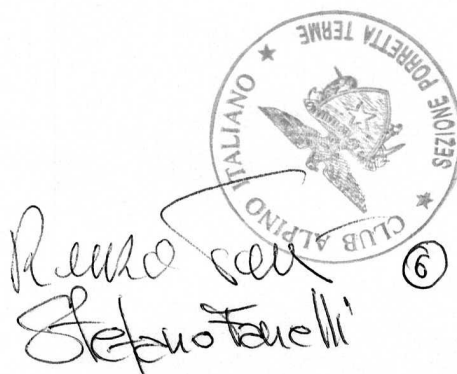 CLUB ALPINO ITALIANO ★ SEZIONE PORRETTA TERME ★
Renzo
6
Stefano Fanelli